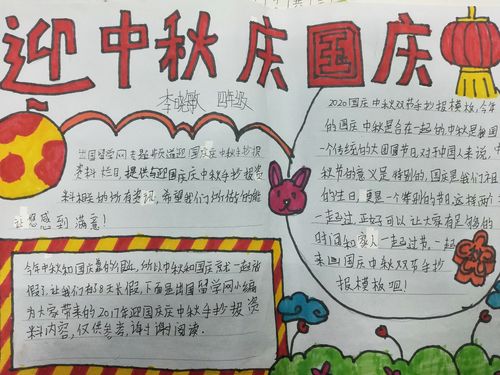 迎中秋庆国庆
李晓敏 四年级
出国留学网专题频道迎国庆庆中秋手抄报
资料栏目,提供与迎国庆庆中秋手抄报资
料相关的所有资讯,希望我们所做的能
让您感到满意!
今年中秋和国庆靠的很近,所以中秋和国庆就一起放
假了,让我们有8天长假,下面是出国留学网小编
为大家带来的2017年迎国庆庆中秋手抄报资
料内容,仅供参考,谢谢阅读.
2020国庆中秋双节手抄报模板,今年
的国庆中秋是合在一起的,中秋是我国
一个传统的大团圆节日,对于中国人来说,中
秋节的意义是特别的,国庆是我们祖
的生日,更是一个特别的节,这样两
一起过,正好可以让大家有足够的
时间和家人一起过节,一起
来画国庆中秋双节手抄
报模板吧!